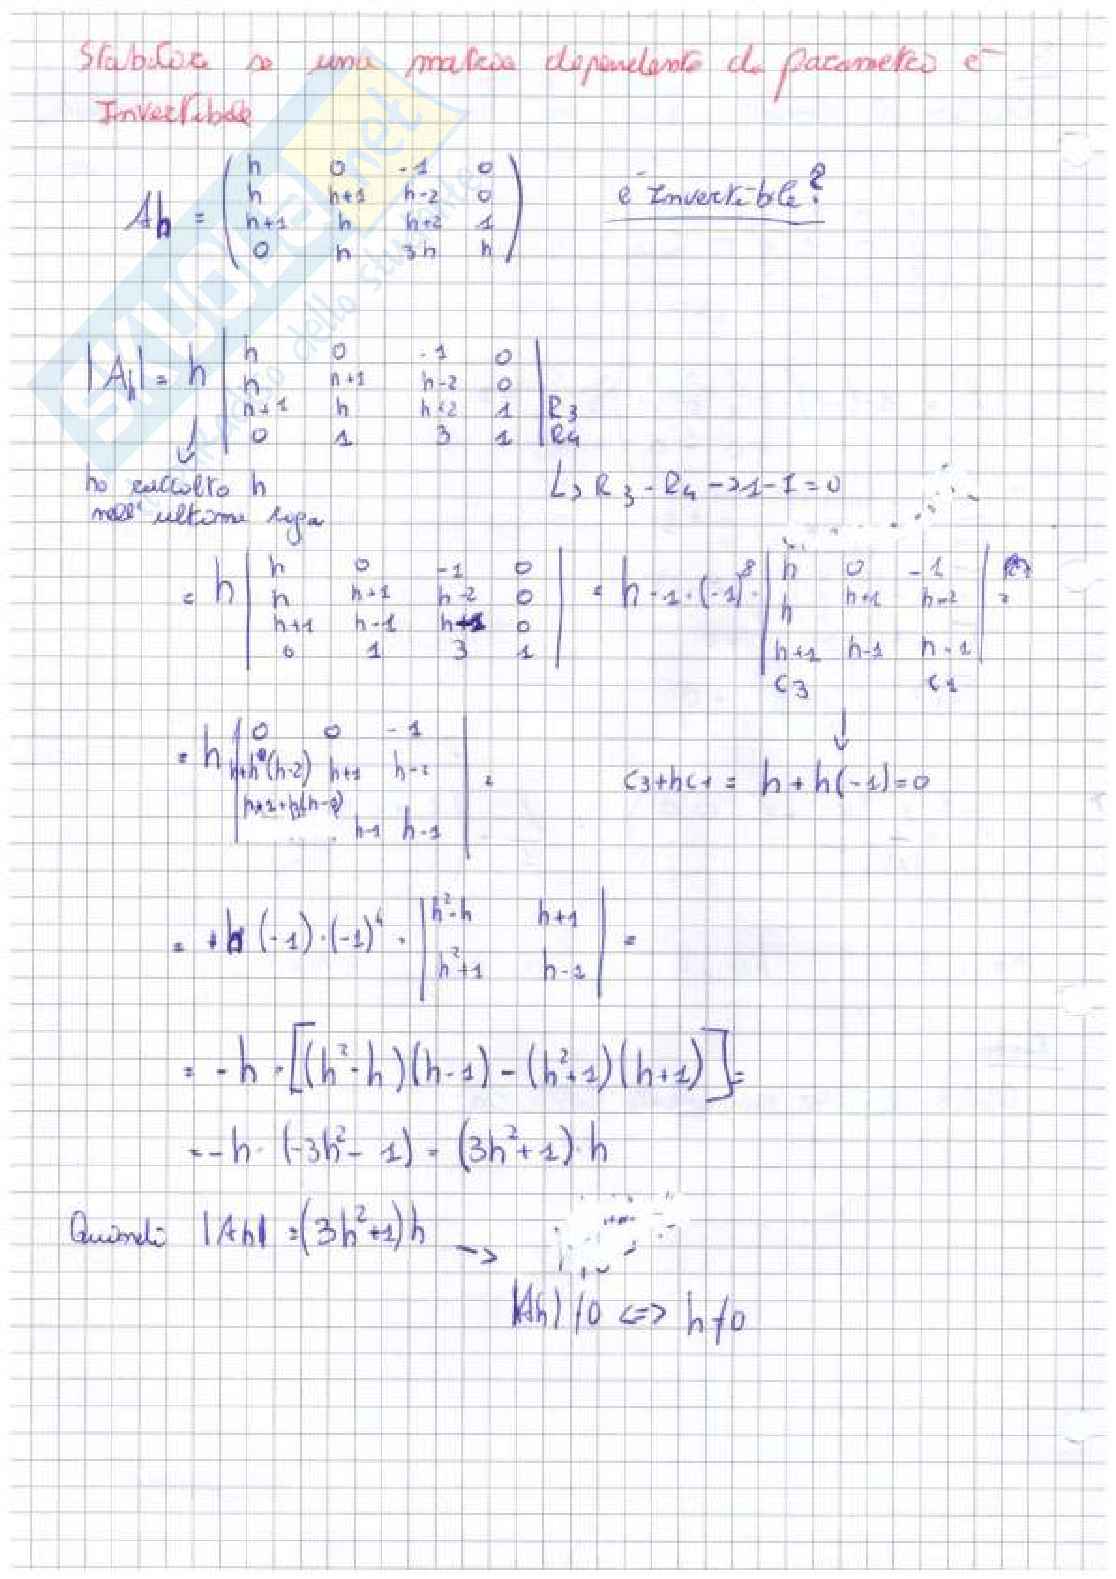 Stabilire se una matrice dipendente da parametro è
Invertibile
Ah = ( h 0 -1 0
h h+1 h-2 0
h+1 h h+2 1
0 h 3h h )
è Invertibile?
|Ah| = h | h 0 -1 0
h h+1 h-2 0
h+1 h h+2 1 | R3
0 1 3 1 | R4
ho raccolto h
nell'ultima riga
L> R3 - R4 -> 1-1=0
= h | h 0 -1 0
h h+1 h-2 0
h+1 h-1 h-1 0
0 1 3 1 |
= h · 1 · (-1)^8 · | h 0 -1
h h+1 h-2
h+1 h-1 h-1 | =
C3 C1
↓
C3+hC1 = h + h(-1) = 0
= h | 0 0 -1
h+h(h-2) h+1 h-2
h+1+h(h-1)
h-1 h-1 | =
= +h (-1)·(-1)^4 · | h²-h h+1
h²+1 h-1 | =
= -h · [(h²-h)(h-1) - (h²+1)(h+1)] =
= -h · (-3h² - 1) = (3h²+1)·h
Quindi |Ah| = (3h²+1)h ->
|Ah| ≠ 0 <=> h ≠ 0
SKUOLA.net
dello studente